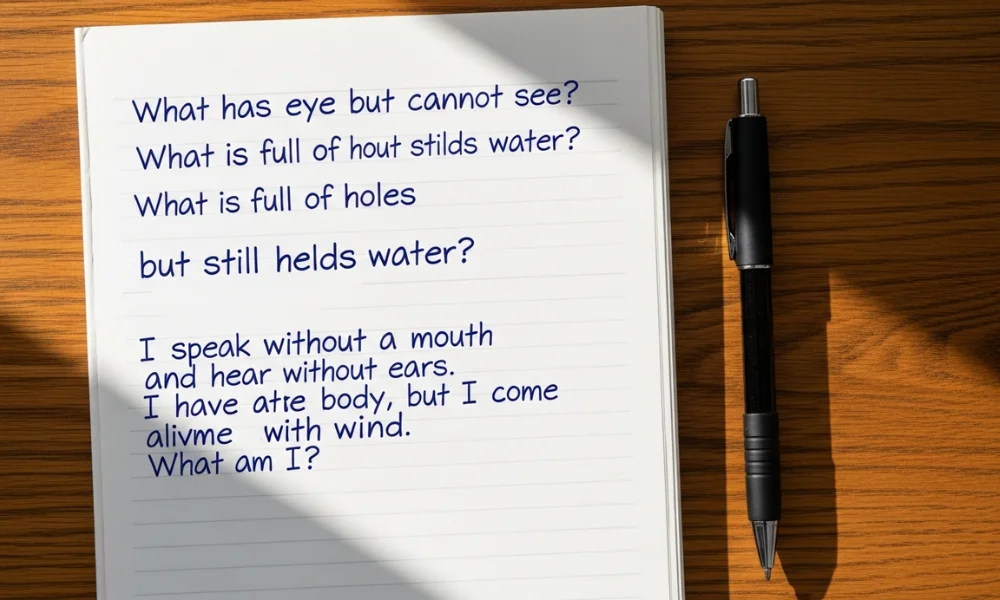 What has eye but cannot see?
What is full of hout stilds water?
What is full of holes
but still helds water?
I speak without a mouth
and hear without ears.
I have atre body, but I come
alivme with wind.
What am I?